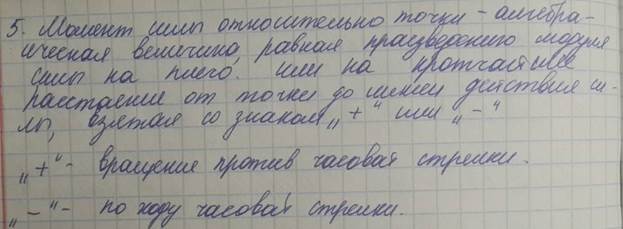 5. Момент силы относительно точки - алгебра-
ическая величина, равная празведению модуля
силы на плечо. или на кротчайшее
расстояние от точки до линии действия си-
лы, взятая со знаком „+“ или „-“
„+“- вращение против часовай стрелки.
„-“- по ходу часовай стрелки.